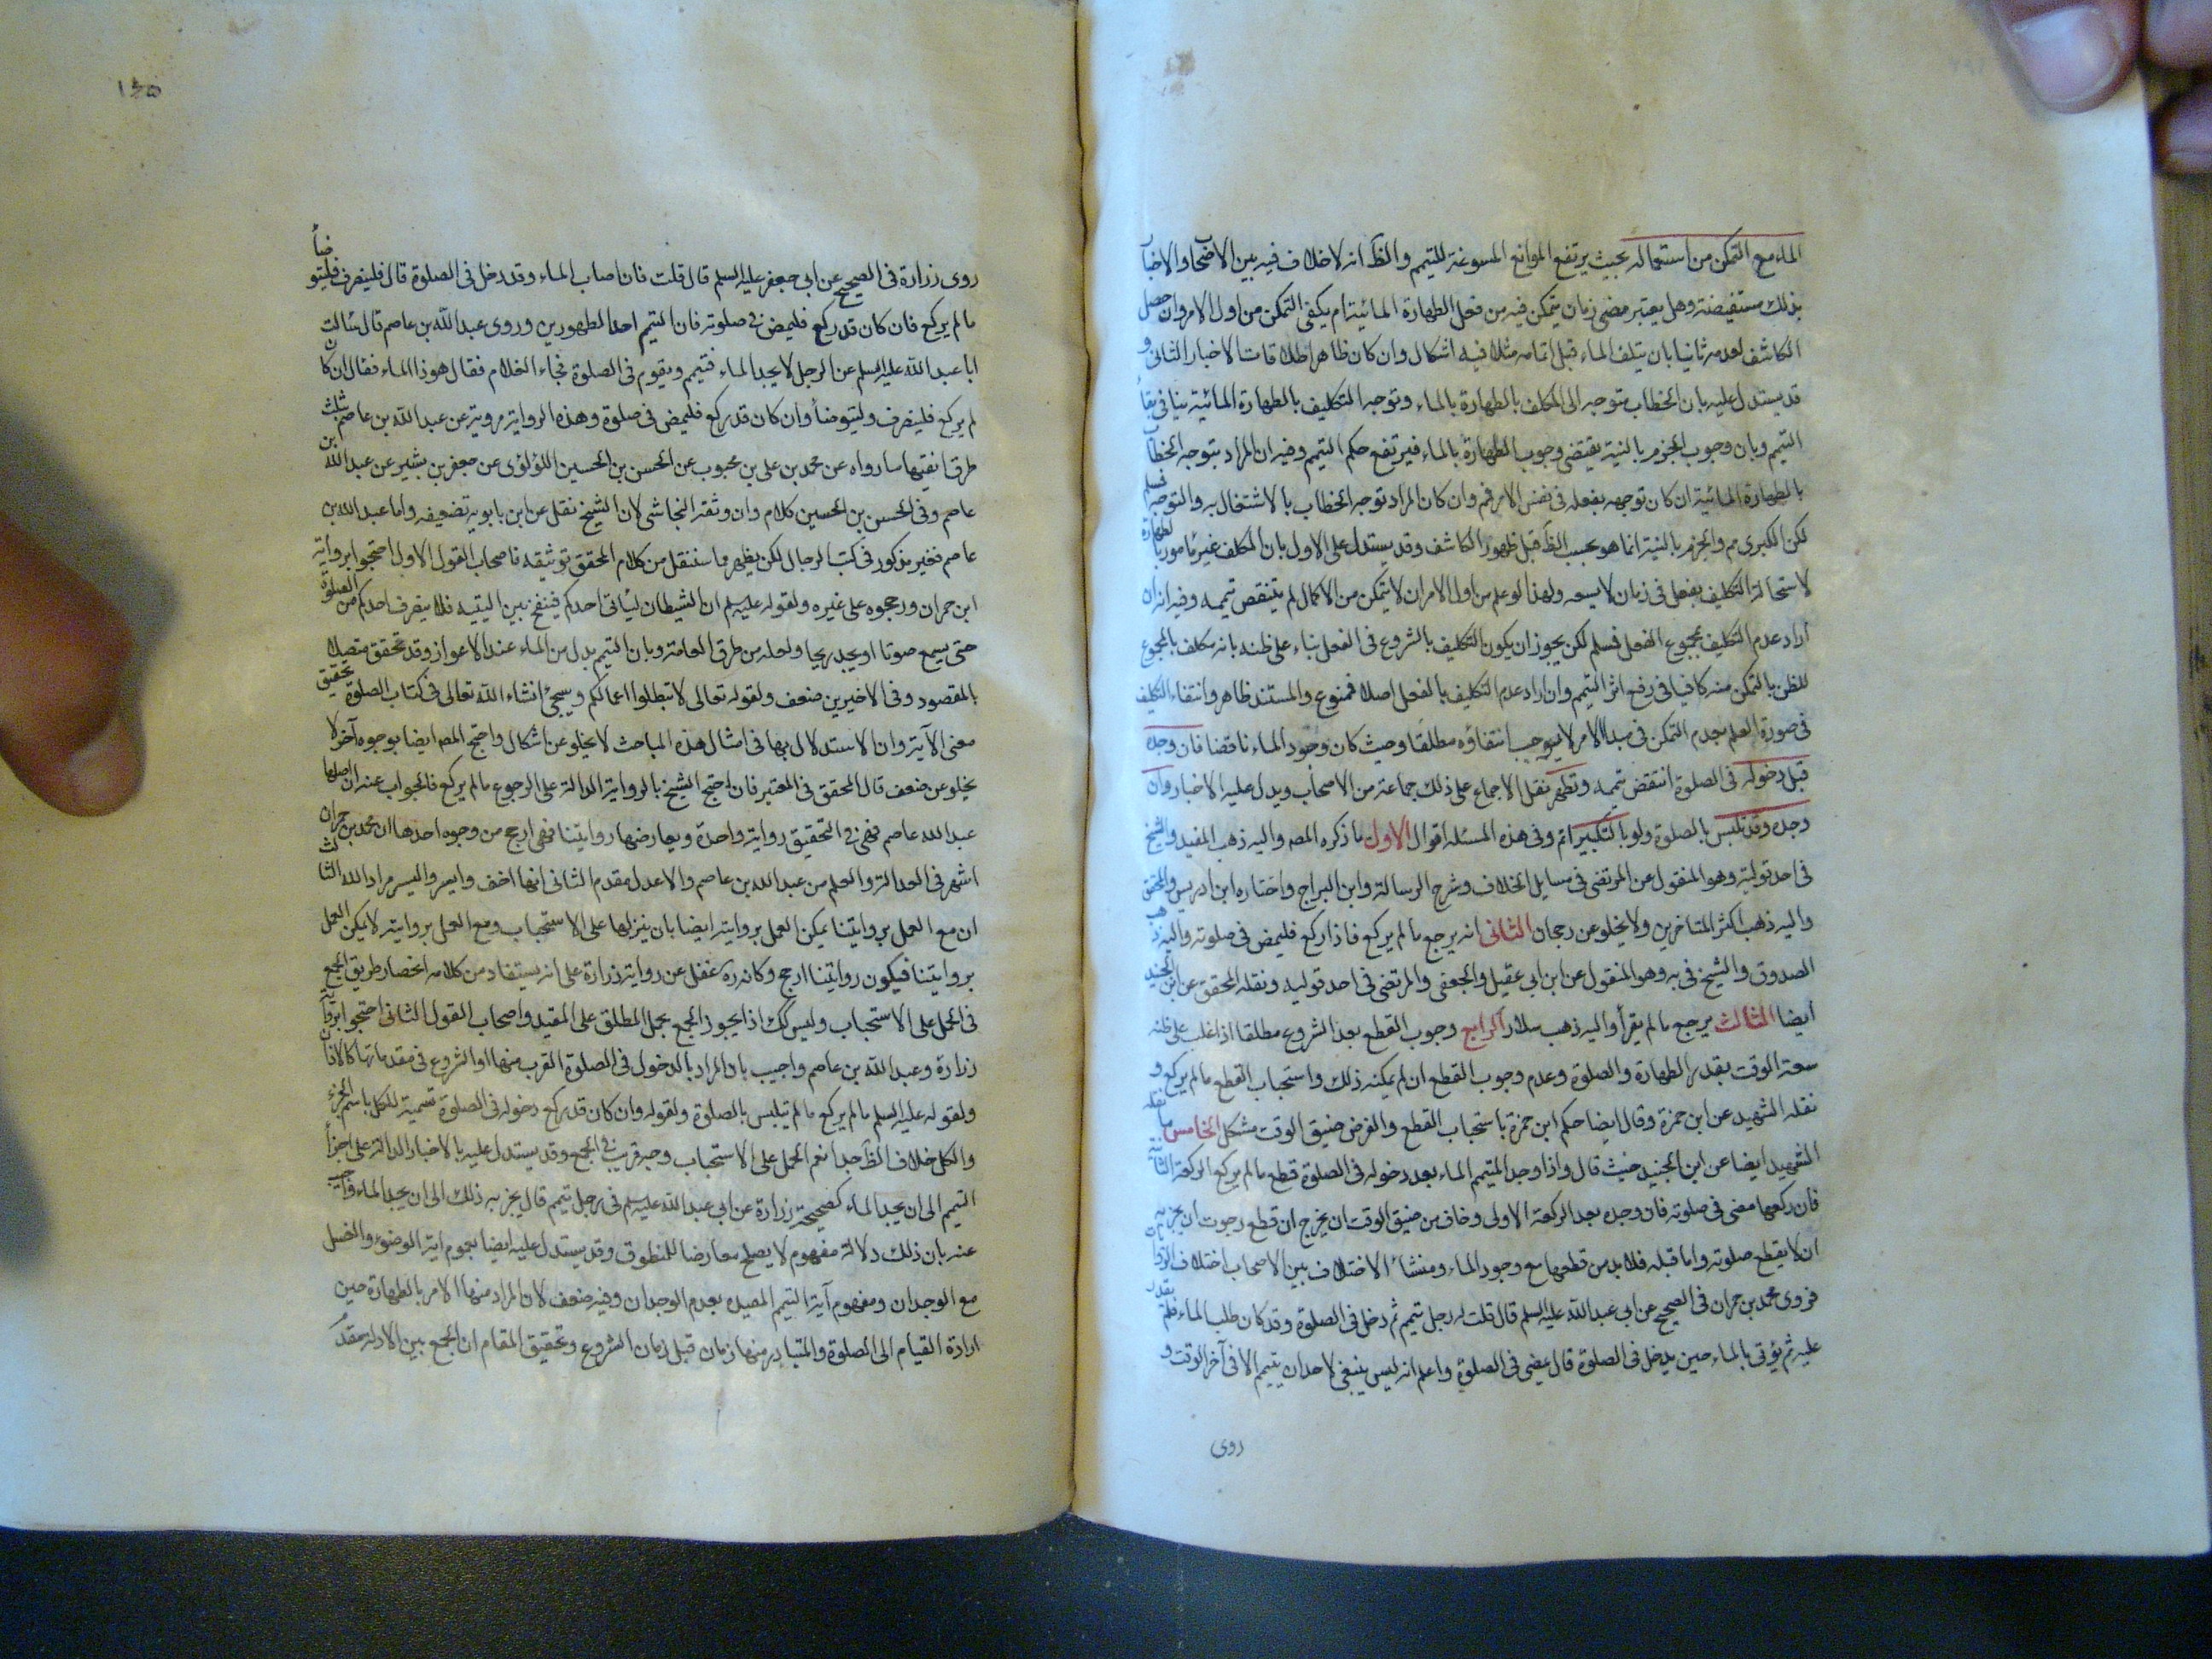 الماء مع التمكن من استعماله بحيث يرتفع الموانع المسوغة للتيمم والظ انه لا خلاف فيه بين الاصحاب والاخبار
بذلك مستفيضة وهل يعتبر مضى زمان يتمكن فيه من فعل الطهارة المائية ام يكفى التمكن من اول الامر وان حصل
الكاشف لعدمه ثانيا بان يتلف الماء قبل اتمامه مثلا فيه اشكال وان كان ظاهر اطلاقات الاخبار الثانى و
قد يستدل عليه بان الخطاب متوجه الى المكلف بالطهارة بالماء وتوجه التكليف بالطهارة المائية ينافى بقاء
التيمم وبان وجوب الجزم بالنية يقتضى وجوب الطهارة بالماء فيرتفع حكم التيمم وفيه ان المراد بتوجه الخطاب
بالطهارة المائية ان كان توجهه بفعله فى نفس الامر فم وان كان المراد توجه الخطاب بالاشتغال به والتوجه فمسلم
لكن الكبرى مم والجزم بالنية انما هو بحسب الظ قبل ظهور الكاشف وقد يستدل على الاول بان المكلف غير مامور بالطهارة
لاستحالة التكليف بفعل فى زمان لا يسعه ولهذا لو علم من اول الامر ان لا يتمكن من الاكمال لم ينتقض تيممه وفيه انه ان
اراد عدم التكليف بمجموع الفعل فمسلم لكن يجوز ان يكون التكليف بالشروع فى الفعل بناء على ظنه بانه مكلف بالمجموع
للظن بالتمكن منه كافيا فى رفع اثر التيمم وان اراد عدم التكليف بالفعل اصلا فممنوع والمستند ظاهر وانتفاء التكليف
فى صورة العلم بعدم التمكن فى مبدا الامر لا يوجب انتفاؤه مطلقا وحيث كان وجود الماء ناقضا فان وجده
قبل دخوله فى الصلوة انتقض تيممه وتطهر نقل الاجماع على ذلك جماعة من الاصحاب ويدل عليه الاخبار وان
وجده وقد تلبس بالصلوة ولو بالتكبير اتم وفى هذه المسئلة اقوال الاول ما ذكره المص واليه ذهب المفيد والشيخ
فى احد قوليه وهو المنقول عن المرتضى فى مسايل الخلاف وشرح الرسالة وابن البراج واختاره ابن ادريس والمحقق
واليه ذهب اكثر المتاخرين ولا يخلو عن رجحان الثانى انه يرجع ما لم يركع فاذا ركع فليمض فى صلوته واليه ذهب
الصدوق والشيخ فى يه وهو المنقول عن ابن ابى عقيل والجعفى والمرتضى فى احد قوليه ونقله المحقق عن ابن الجنيد
ايضا الثالث يرجع ما لم يقرأ واليه ذهب سلار الرابع وجوب القطع بعد الشروع مطلقا اذا غلب على ظنه
سعة الوقت بقدر الطهارة والصلوة وعدم وجوب القطع ان لم يمكنه ذلك واستحباب القطع ما لم يركع و
نقله الشهيد عن ابن حمزة وقال ايضا حكم ابن حمزة باستحباب القطع والفرض ضيق الوقت مشكل الخامس ما نقله
الشهيد ايضا عن ابن الجنيد حيث قال واذا وجد المتيمم الماء بعد دخوله فى الصلوة قطع ما لم يركع الركعة الثانية
فان ركعها مضى فى صلوته فان وجده بعد الركعة الاولى وخاف من ضيق الوقت ان يخرج ان قطع رجوت ان يجزيه
ان لا يقطع صلوته واما قبله فلا بد من قطعها مع وجود الماء ومنشأ الاختلاف بين الاصحاب اختلاف الروايات
فروى محمد بن حمران فى الصحيح عن ابى عبد الله عليه السلم قال قلت له رجل تيمم ثم دخل فى الصلوة وقد كان طلب الماء فلم يقدر
عليه ثم يؤتى بالماء حين يدخل فى الصلوة قال يمضى فى الصلوة واعلم انه ليس ينبغى لاحد ان يتيمم الا فى آخر الوقت و
روى
١٤٥
روى زرارة فى الصحيح عن ابى جعفر عليه السلم قال قلت فان اصاب الماء وقد دخل فى الصلوة قال فلينصرف فليتوضأ
ما لم يركع فان كان قد ركع فليمض فى صلوته فان التيمم احد الطهورين وروى عبد الله بن عاصم قال سئالت
ابا عبد الله عليه السلم عن الرجل لا يجد الماء فتيمم ويقوم فى الصلوة فجاء الغلام فقال هوذا الماء فقال ان كان
لم يركع فلينصرف وليتوضأ وان كان قد ركع فليمض فى صلوة وهذه الرواية مروية عن عبد الله بن عاصم بثلث
طرق انقيها ما رواه عن محمد بن على بن محبوب عن الحسن بن الحسين اللؤلؤى عن جعفر بن بشير عن عبد الله بن
عاصم وفى الحسن بن الحسين كلام وان وثقه النجاشى لان الشيخ نقل عن ابن بابويه تضعيفه واما عبد الله بن
عاصم فغير مذكور فى كتب الرجال لكن يظهر مما سننقل من كلام المحقق توثيقه فاصحاب القول الاول احتجوا برواية
ابن حمران ورجحوه على غيره ولقوله عليه لم ان الشيطان ليأتى احدكم فينفخ بين اليتيه فلا ينصرف احدكم من الصلوة
حتى يسمع صوتا او يجد ريحا ولعله من طرق العامة وبان التيمم بدل من الماء عند الاعواز وقد تحقق متصلا
بالمقصود وفى الاخيرين ضعف ولقوله تعالى لا تبطلوا اعمالكم وسيجئ انشاء الله تعالى فى كتاب الصلوة تحقيق
معنى الآية وان الاستدلال بها فى امثال هذه المباحث لا يخلو عن اشكال واحتج المص ايضا بوجوه آخر لا
يخلو عن ضعف قال المحقق فى المعتبر فان احتج الشيخ بالرواية الدالة على الرجوع ما لم يركع فالجواب عنه ان اصلها
عبد الله عاصم فهى فى التحقيق رواية واحدة ويعارضها روايتنا فهى ارجح من وجوه احدها ان محمد بن حمران
اشهر فى العدالة والعلم من عبد الله بن عاصم والاعدل مقدم الثانى انها اخف وايسر واليسر مراد الله الثالث
ان مع العمل بروايتنا يمكن العمل بروايته ايضا بان ينزلها على الاستحباب ومع العمل بروايته لا يمكن العمل
بروايتنا فيكون روايتنا ارجح وكانه ره غفل عن رواية زرارة على انه يستفاد من كلامه انحصار طريق الجمع
فى الحمل على الاستحباب وليس كك اذ يجوز الجمع بحمل المطلق على المقيد واصحاب القول الثانى احتجوا برواية
زرارة وعبد الله بن عاصم واجيب بان المراد بالدخول فى الصلوة القرب منها او الشروع فى مقدماتها كالاذان
ولقوله عليه السلم ما لم يركع ما لم يتلبس بالصلوة ولقوله وان كان قد ركع دخوله فى الصلوة تسمية للكل باسم الجزء
والكل خلاف الظ جدا نعم الحمل على الاستحباب وجه قريب فى الجمع وقد يستدل عليه بالاخبار الدالة على اجزأ
التيمم الى ان يجد الماء كصحيحة زرارة عن ابى عبد الله عليه لم فى رجل تيمم قال يجزيه ذلك الى ان يجد الماء واجيب
عنه بان ذلك دلالة مفهوم لا يصلح معارضا للمنطوق وقد يستدل عليه ايضا بعموم اية الوضوء والغسل
مع الوجدان ومفهوم آية التيمم المقيدة بعدم الوجدان وفيه ضعف لان المراد منها الامر بالطهارة حين
ارادة القيام الى الصلوة والمتبادر منها زمان قبل زمان الشروع وتحقيق المقام ان الجمع بين الادلة مقدم